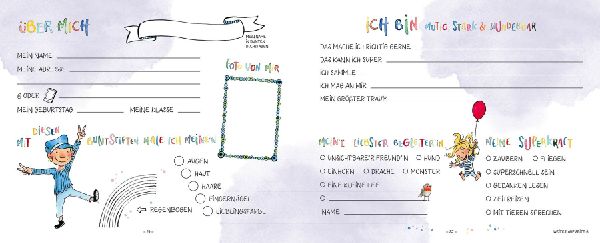 ÜBER MICH
MEIN NAME
MEINE
ODER
MEIN GEBURTSTAG
MEINE KLASSE
FOTO VON MIR
MIT DIESEN BUNTSTIFTEN MALE ICH MEINE/N
AUGEN
HAUT
HAARE
FINGERNÄGEL
REGENBOGEN
LIEBLINGSFARBE
ICH BIN MUTIG STARK & WUNDERBAR
DAS MACHE ICH RICHTIG GERNE
DAS KANN ICH SUPER
ICH SAMMLE
ICH MAG AN MIR
MEIN GRÖSSTER TRAUM
MEIN/E LIEBSTE/R BEGLEITER/IN
UNSICHTBARE/R FREUND/IN
HUND
EINHORN
DRACHE
MONSTER
EINE KLEINE FEE
NAME
MEINE SUPERKRAFT
ZAUBERN
FLIEGEN
SUPERSCHNELL SEIN
GEDANKEN LESEN
ZEITREISEN
MIT TIEREN SPRECHEN